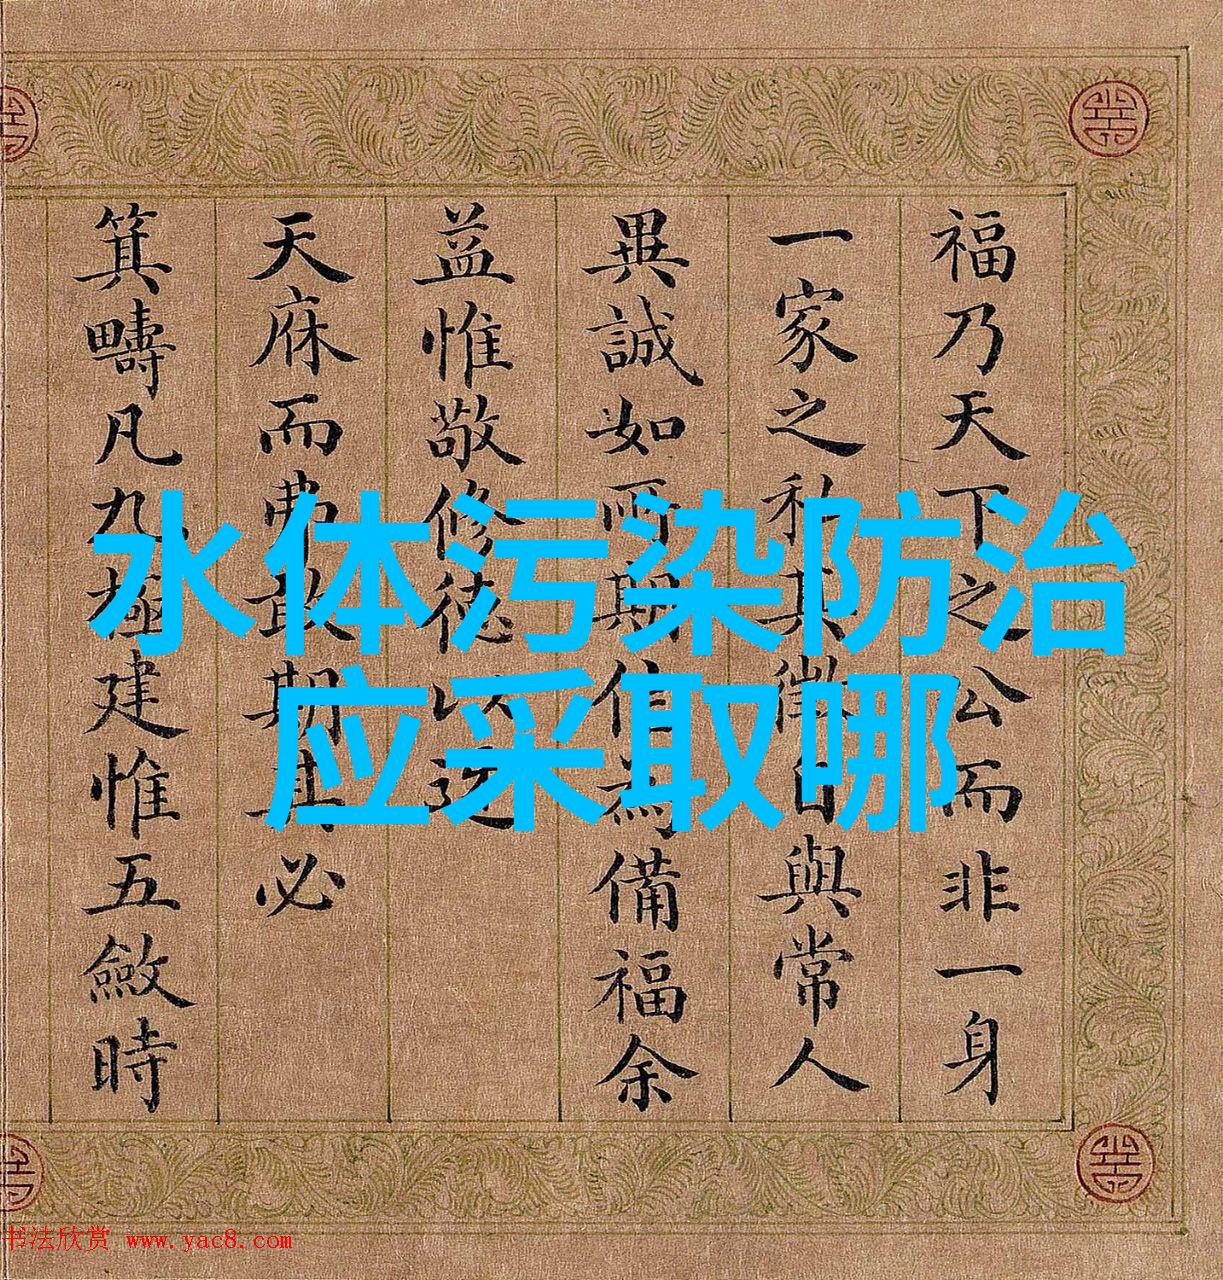 福乃天下之公而非一身
一家之私其徵與常人
異誠如所期為備福余
益惟敬修德以迓
天庥而弗敢期其必
箕疇凡九極建惟五斂時
水体污染防治
应采取哪
书法欣赏 www.yac8.com